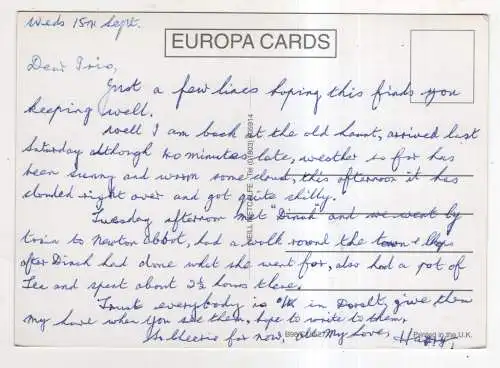 Weds 15th Sept.
EUROPA CARDS
Dear Iris,
Just a few lines hoping this finds you
keeping well.
Well I am back at the old haunt, arrived last
Saturday although 40 minutes late, weather so far has
been sunny and warm some cloud, this afternoon it has
clouded right over and got quite chilly.
Tuesday afternoon met "Dinah" and we went by
train to Newton Abbot, had a walk round the town & shops
after Dinah had done what she went for, also had a pot of
Tea and spent about 2½ hours there.
Trust everybody is O/K in, give them
my love when you see them, hope to write to them.
Cheerio for now, all My Love,
Printed in the U.K.